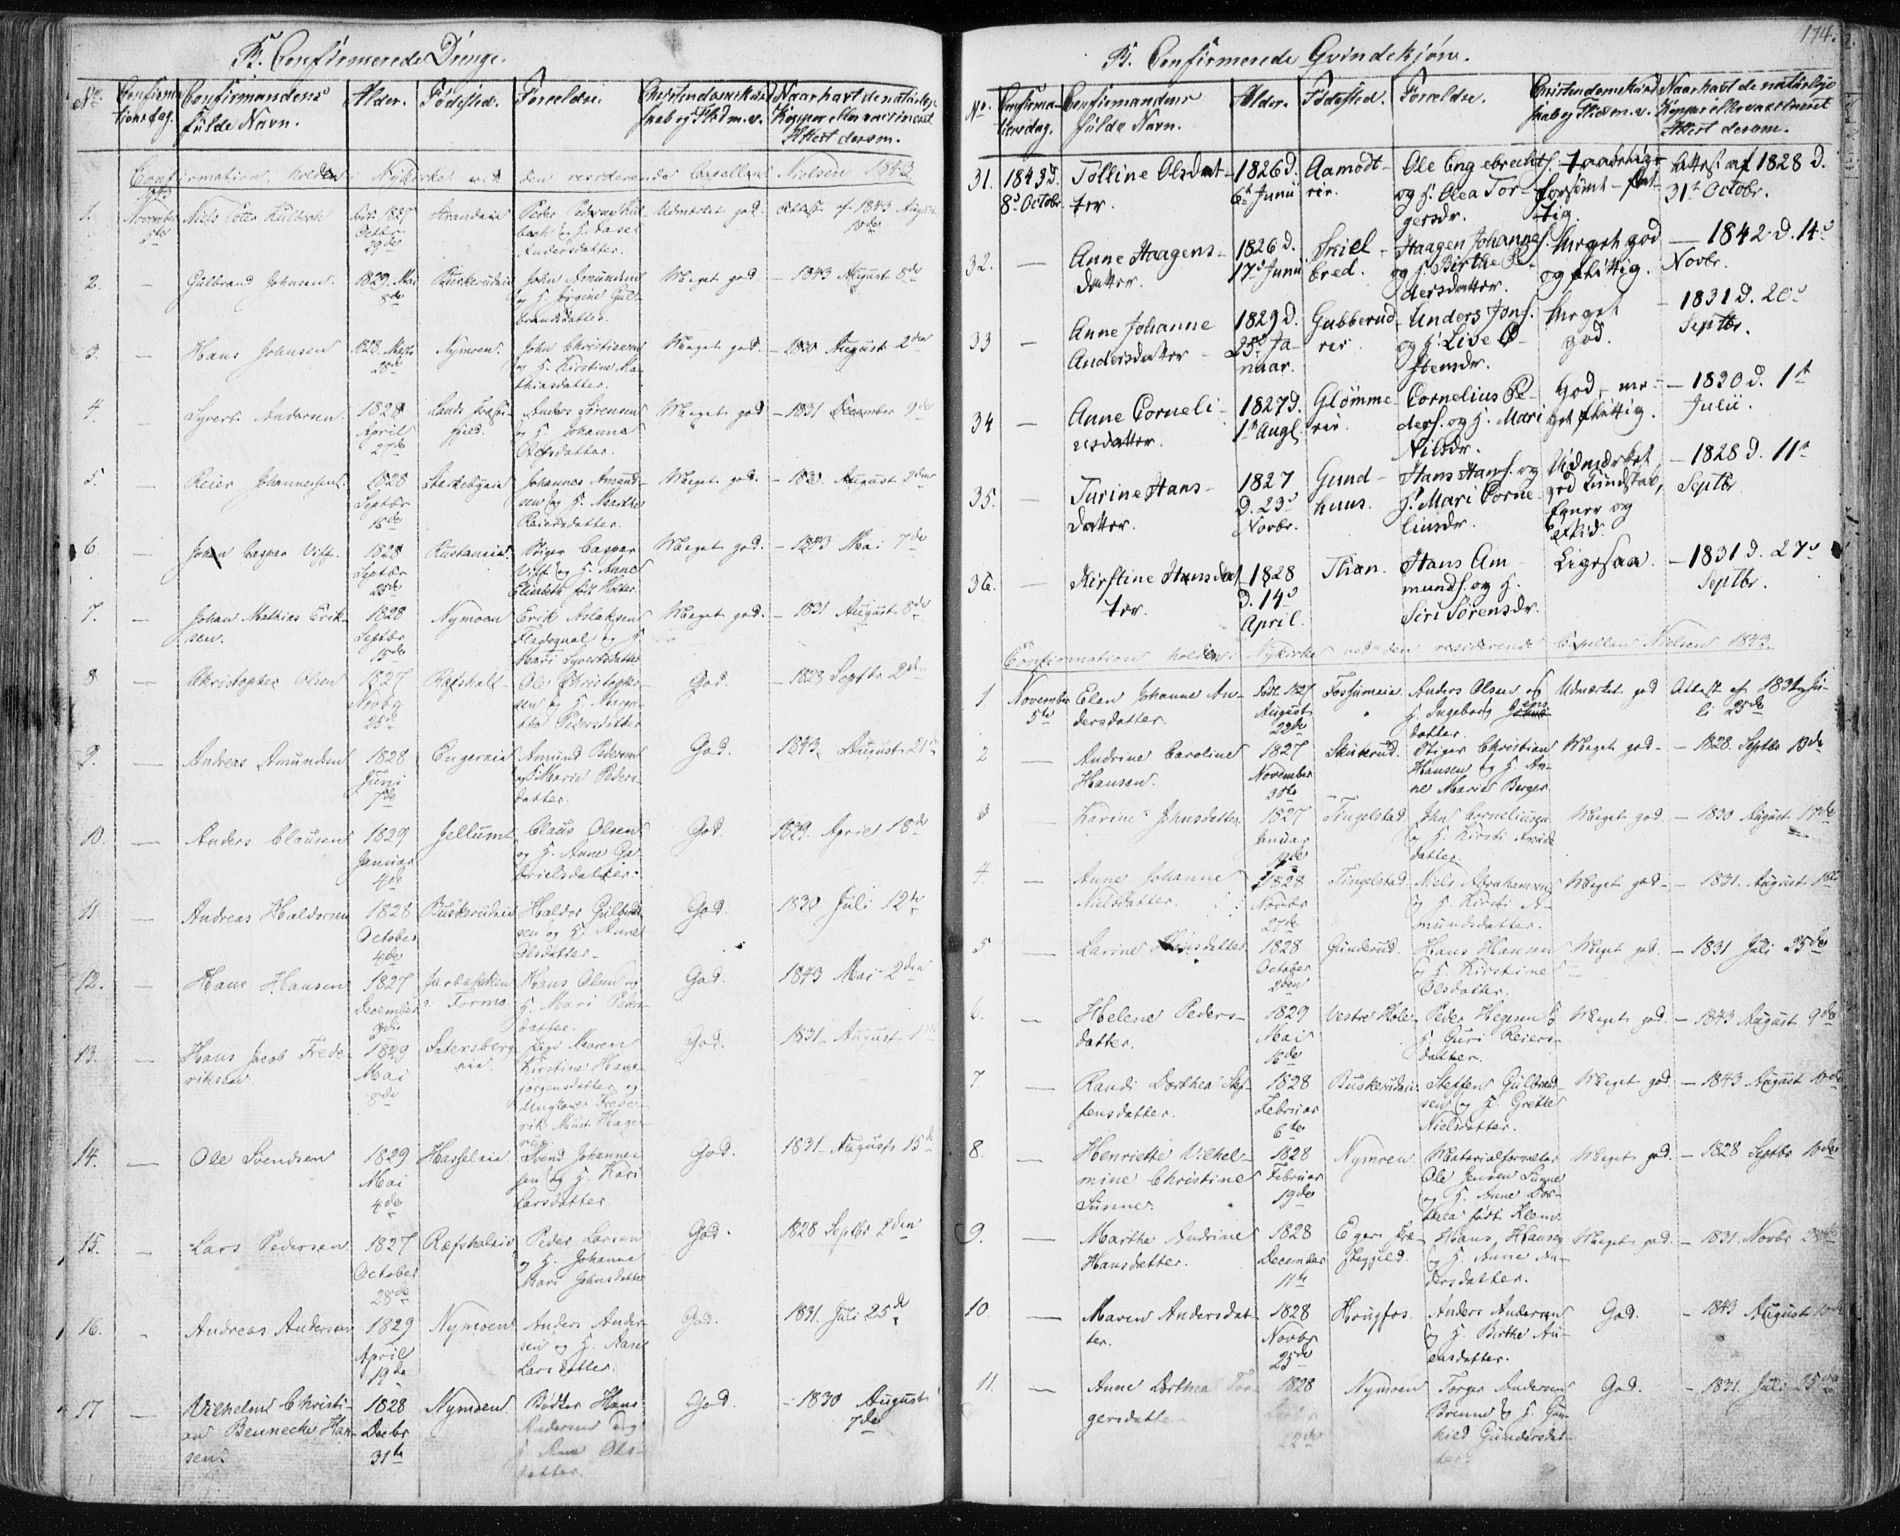 B. Confirmerede Drenge.
No.
Confirma-
tionsdag.
Confirmandens
fulde Navn.
Alder.
Fødested.
Forældre.
Christendomskund-
skab og Flid m. v.
Naar havt de naturlige
Kopper eller vaccineret
Attest derom.
Confirmation holden i Nykirke ved den residerende Capellan Nielsen 1843
1.
Novembr
5te
Niels Peter
1827
Octbr
29de
Udmærket god
Attest af 1843 August
10de
2.
—
Gulbrand Johnsen.
1829 Mai
8de
Buskerudeie
John Amundsen
og H. Jørgine Gul-
brandsdatter.
Meget god.
— 1843 August 8de
3.
—
Hans Johnsen
1828 Marts
28de
Nymoen.
John Christiansen
og H. Kirstine Ma-
thiasdatter.
Meget god.
— 1830 August 2den
4.
—
Syvert Andersen
1829
April
27de
Anders Sørensen
og H. Johanne
Olesdatter.
Meget god
— 1831 December 9de
5.
—
Reier Johannessen.
1828
Septbr
18de
Johannes Amund-
sen og H. Marthe
Reiersdatter.
Meget god.
— 1830 August 2den
6.
—
Johan Caspar
1828
Septbr
23de
Caspar
og H. Anne
Elisabeth
Meget god.
— 1843 Mai 7de
7.
—
Johan Mathias Erik-
sen.
1828
Septbr
15de
Nymoen
Erik Aslaksen
og H.
Mari Syvertsdatter
Meget god.
— 1831 August 8de
8
—
Christopher Olsen
1827
Novbr
25de
Ole Christopher-
sen og H. Margre-
the Pedersdatter
God.
— 1828 Septbr 2den
9.
—
Andreas Amundsen
1828
Juni
7de
Engerneie
Amund Pedersen
og H. Marie Peders-
datter.
God.
1843. August 21
10.
—
Anders Clausen
1829
Januar
4de
Jellumt
Claus Olsen
og H. Anne Ga-
brielsdatter.
God.
1829. April 18de
11
—
Andreas Haldorsen
1828
October
4de
Buskerudeie
Haldor Gulbrand-
sen og H. Anne
Olsdatter.
God.
1830 Juli 12te
12.
—
Hans Hansen
1827
December
Hans Olsen og
H. Mari Peders-
datter.
God.
1843 Mai 2den
13.
—
Hans Jacob Frede-
riksen.
1829
Mai
8de
Satersberg
eie.
Pige Maren
Kirstine Hans-
jørgensdatter og
Ungkarl Frede-
rik
God.
1831 August
14.
—
Ole Svendsen
1829
Mai
4de
Hasseleie
Svend Johannes-
sen og H. Kari
Larsdatter
God.
1831 August 15de
15.
—
Lars Pedersen.
1827
October
28de
Ræfshaleie
Peder Larsen
og H. Johanne
Mari Johnsdatter
God.
1828 Septbr 2den
16.
—
Andreas Andersen
1829
April
19de
Nymoen
Anders Ander-
sen og H. Anne
Larsdatter.
God.
1831. Juli 25de
17
—
Vilhelm Christi-
an Bennecke Han-
sen.
1828
Decbr
31te
Nymoen.
Bødker Hans
Andersen og
H. Ane Ols-
datter.
God.
— 1830 August
7de
174.
B. Confirmerede Qvindekjøn.
No.
Confirma-
tionsdag.
Confirmandens
fulde Navn.
Alder.
Fødested.
Forældre.
Christendomskund-
skab og Flid m. v.
Naar havt de naturlige
Kopper eller vaccineret
Attest derom.
31.
1843 d.
8de Octobr.
Tolline Olsdat-
ter.
1826 d.
6te Junii
Aamodt-
eie.
Ole Engebrechts.
og H. Olea Tor-
gersdr.
Taalelige
forsømt - flit-
tig.
Attest af 1828 d.
31te Octobr.
32.
—
Anne Haagens-
datter.
1826 d.
17de Junii
Haagen Johannes.
og H. Birthe Pe-
dersdatter.
Meget god
og flittig.
— 1842 d. 14de
Novbr.
33
—
Anne Johanne
Andersdatter
1829 d.
25de Ja-
nuar.
Gubberud-
eie.
Anders Jons.
og H. Live
stensdr.
Meget
god.
— 1831 d. 20de
Septbr.
34
—
Anne Corneli-
usdatter.
1827 d.
1ste Augs.
Glømme-
eie.
Cornelius Pe-
ders. og H. Mari
Nilsdr.
God - me-
get flittig.
— 1830 d. 1ste
Julii.
35.
—
Turine Hans-
datter.
1827
d. 23de
Novbr.
Gund-
huus.
Hans Hans. og
H. Mari Corne-
liusdr.
Udmærket
god Kundskab,
Evner og
Flid.
— 1828 d. 11te
Septbr
36.
—
Kirstine Hansdat-
ter.
1828
d. 14de
April.
Thon.
Hans Am-
munds. og H.
Siri Sørensdr.
Ligesaa.
— 1831 d. 27de
Septbr.
Confirmation holden i Nykirke ved den residerende Capellan Nielsen 1843.
1
November
5te
Elen Johanne An-
dersdatter.
Født 1827
August
29de
Fossumeie
Anders Olsen og
H. Ingeborg Jens
datter.
Udmærket god
Attest af 1831 Ju-
li 25de
2
—
Andrine Caroline
Hansen.
1827
November
30te
Skuterud.
Stiger Christian
Hansen og H. An-
ne Marie Berger
Meget god-
— 1828 Septbr 13de
3
—
Karine Johnsdatter
1827
Januar
19de
Tingelstad
John Corneliussen
og H. Kirsti
datter
Meget god
— 1830 August 17de
4.
—
Anne Johanne
Nielsdatter.
1828
Novbr
27de
Tingelstad
Niels Abrahamsen
og H. Kirsti A-
mundsdatter.
Meget god-
— 1831. August
5
—
Larine Hansdatter
1828
October
2den
Gunderud.
Hans Hansen
og H. Kirstine
Olsdatter.
Meget god.
— 1831 Juli 25de
6.
—
Helene Peders-
datter.
1829
Mai
16de
Vestre Hole
Peder og
H. Guri Reiers-
datter.
Meget god.
— 1843 August 9de
7.
—
Randi Dorthea Stef-
fensdatter.
1828
Februar
6te
Buskerudeie
Steffen Gulbrand-
sen og H. Grethe
Nielsdatter.
Meget god
— 1843 August 10de
8.
—
Henriette Vilhel-
mine Christine
Sunne.
1828
Februar
19de
Nymoen
Materialforvalter
Ole Jensen Sunne
og H. Anne Dor-
thea født Klem
Meget god.
— 1828 Septbr 10de
9.
—
Marthe Andrine
Hansdatter.
1828
December
11te
Egers Præ-
stegjeld.
Hans Hansen
og H. Anne An-
dersdatter.
Meget god.
— 1831 Novbr
10.
—
Maren Andersdat-
ter.
1828
Novbr
25de
Hougfos.
Anders Andersen
og H. Birthe An-
densdatter.
God.
— 1843 August 10de
11.
—
Anne Dorthea Tor-
gersdatter
1828
22de
Nymoen
Torger Andersen
Brenne og H. Gun-
hild Gundersdat-
ter.
God.
— 1831. Juli 25de